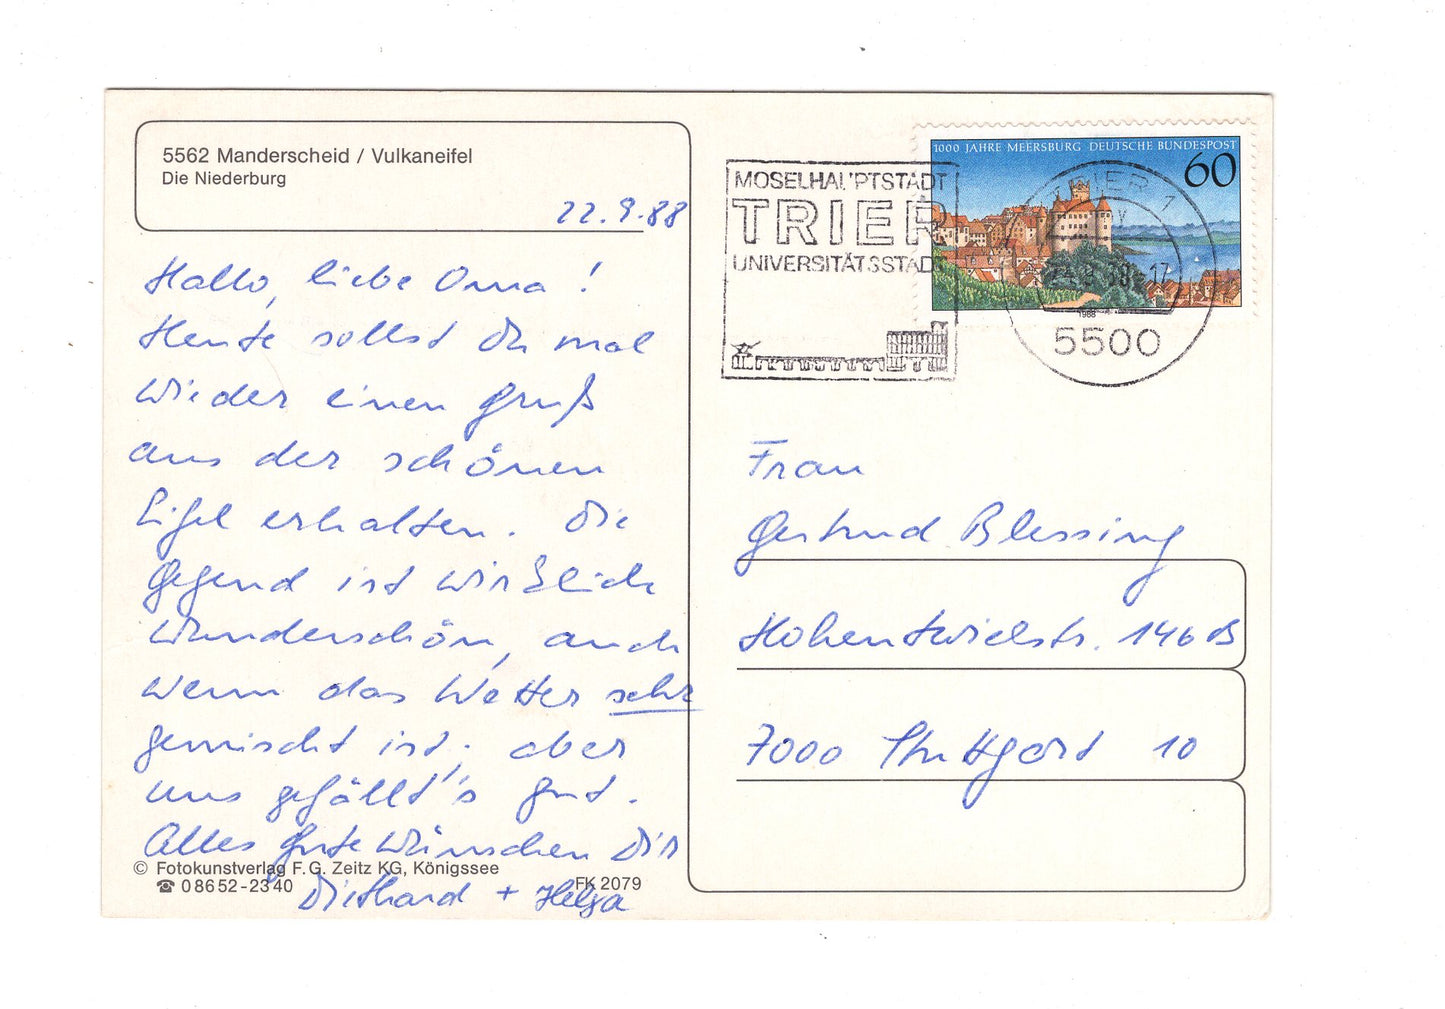 5562 Manderscheid / Vulkaneifel
Die Niederburg
22.9.88
Hallo, liebe Oma!
Heute sollst Du mal
wieder einen Gruß
aus der schönen
Eifel erhalten. Die
Gegend ist wirklich
wunderschön, auch
wenn das Wetter sehr
gemischt ist; aber
uns gefällt's gut.
Alles Gute wünschen Dir
Diethard + Helga
© Fotokunstverlag F. G. Zeitz KG, Königssee
☎ 08652-2340
FK 2079
MOSELHAUPTSTADT
TRIER
UNIVERSITÄTSSTADT
1000 JAHRE MEERSBURG DEUTSCHE BUNDESPOST
60
1988
TRIER 1
5500
Frau
Gertrud Blessing
Hohentwielstr. 146 B
7000 Stuttgart 10